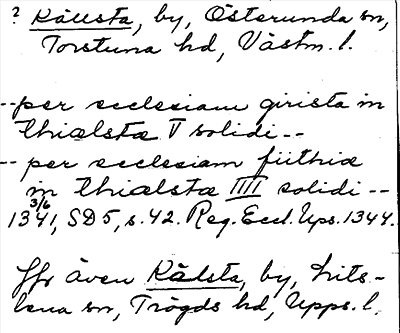 ? Källsta, by, Österunda sn,
Torstuna hd, Västm. l.
--per ecclesiam girista in
thiælstæ V solidi--
-- per ecclesiam fiithiæ
in thiælstæ IIII solidi --
3/6
1341, SD5, s. 42. Reg. Eccl. Ups. 1344.
Jfr även Kälsta, by, Lits-
lena sn, Trögds hd, Upps. l.